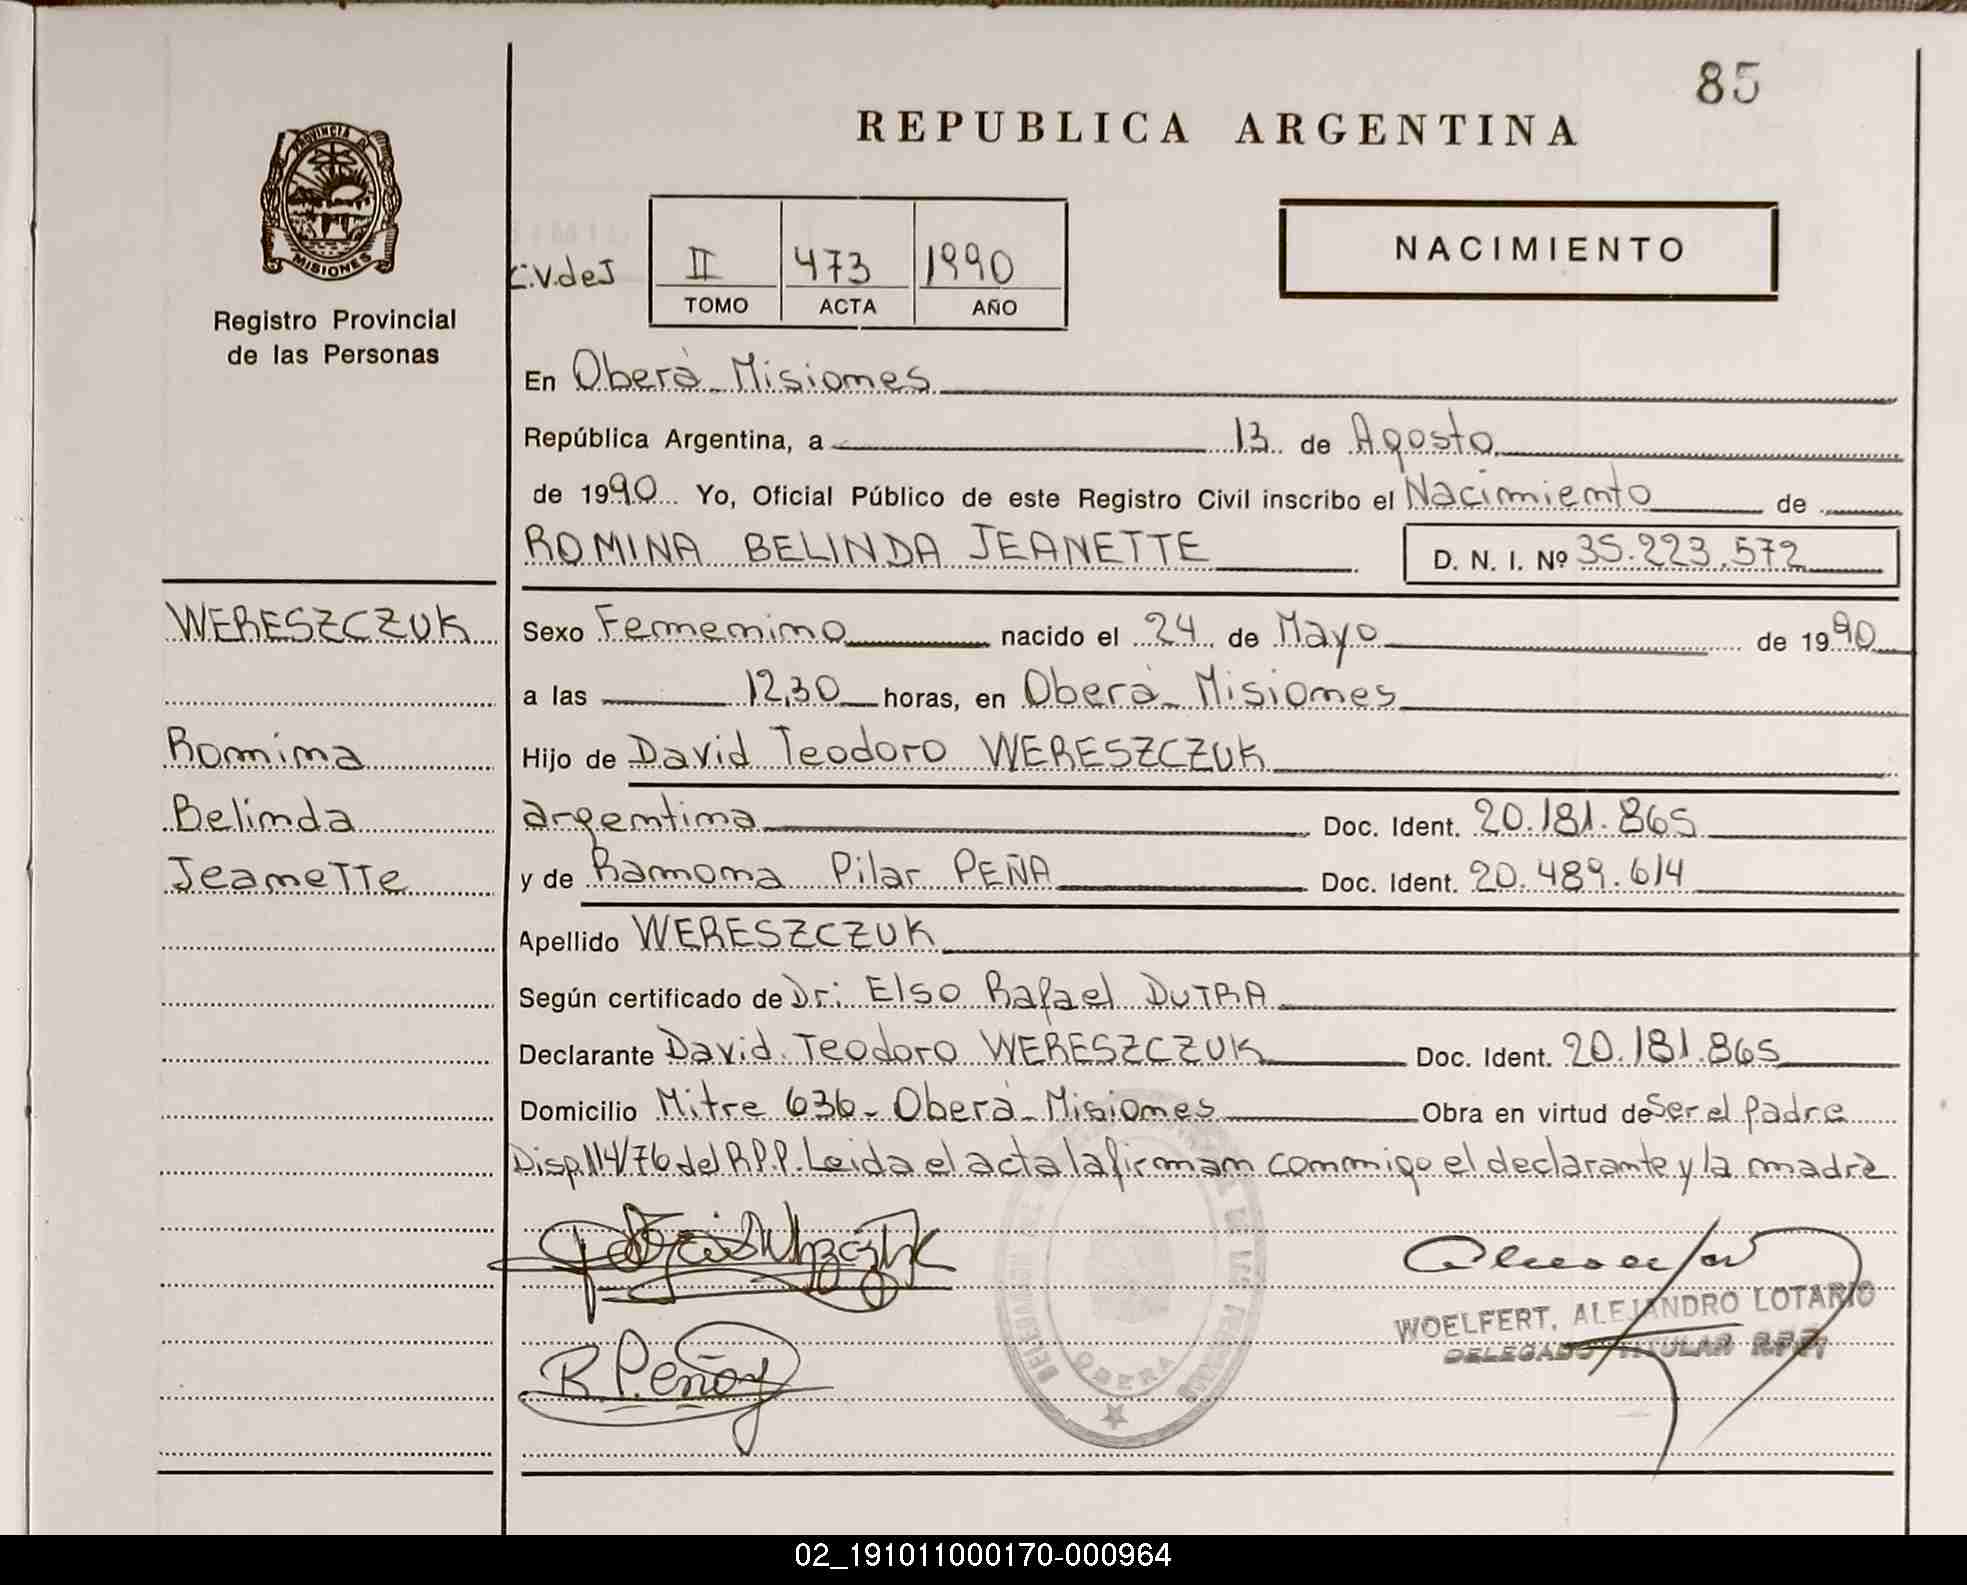 85
REPUBLICA ARGENTINA
PROVINCIA DE
MISIONES
Registro Provincial
de las Personas
C.V.deJ
II 473 1990
TOMO ACTA AÑO
NACIMIENTO
En Oberà - Misiones
República Argentina, a 13 de Agosto
de 1990 Yo, Oficial Público de este Registro Civil inscribo el Nacimiento de
ROMINA BELINDA JEANETTE D. N. I. Nº 35.223.572
WERESZCZUK
Sexo Femenino nacido el 24 de Mayo de 1990
a las 12,30 horas, en Oberà - Misiones
Romina
Hijo de David Teodoro WERESZCZUK
Belinda
argentina Doc. Ident. 20.181.865
Jeanette
y de Ramona Pilar PEÑA Doc. Ident. 20.489.614
Apellido WERESZCZUK
Según certificado de Dr: Elso Rafael DUTRA
Declarante David Teodoro WERESZCZUK Doc. Ident. 20.181.865
Domicilio Mitre 636 - Oberà - Misiones Obra en virtud de Ser el padre
Disp. 114/76 del R.P.P. Leida el acta la firman conmigo el declarante y la madre
R Peña
WOELFERT, ALEJANDRO LOTARIO
DELEGADO TITULAR R.P.P.
OBERA
02_191011000170-000964